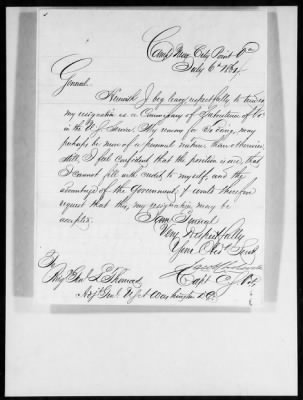 Camp Near City Point Va
July 6th 1864
General
Herewith I beg leave respectfully to tender
my resignation as a Commissary of Subsistence of Vols
in the U.S. Service. My reason for so doing, may
perhaps be more of a personal nature than otherwise
still, I feel confident that the position is one, that
I cannot fill with credit to myself, and the
advantage of the Government, I would therefore
request that this, my resignation may be
accepted.
I am General
Very Respectfully
Your Obt Servt
Capt C.S. Vols
To
Brig Genl L. Thomas
Adjt Genl Washington D.C.